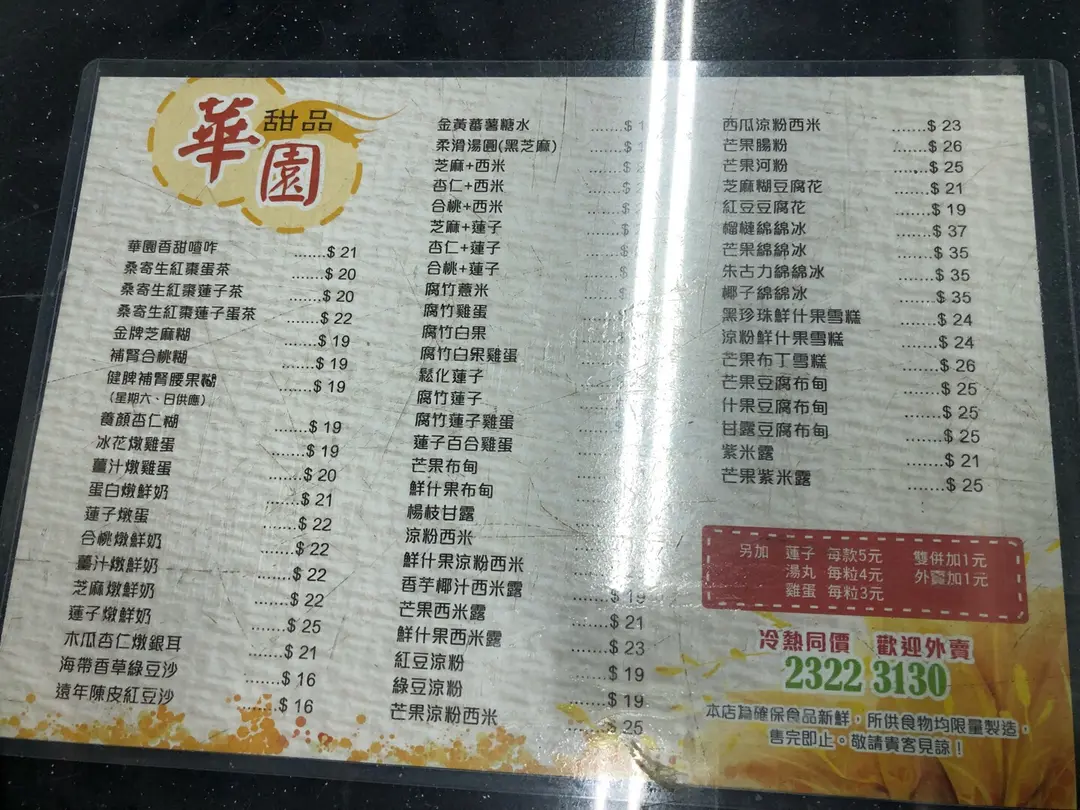 華園
甜品
華園香甜喳咋 ........$ 21
桑寄生紅棗蛋茶 ........$ 20
桑寄生紅棗蓮子茶 .......$ 20
桑寄生紅棗蓮子蛋茶 .......$ 22
金牌芝麻糊 .......$ 19
補腎合桃糊 .......$ 19
健脾補腎腰果糊 .......$ 19
(星期六、日供應)
養顏杏仁糊 .......$ 19
冰花燉雞蛋 .......$ 19
薑汁燉雞蛋 .......$ 20
蛋白燉鮮奶 .......$ 21
蓮子燉蛋 .......$ 22
合桃燉鮮奶 .......$ 22
薑汁燉鮮奶 .......$ 22
芝麻燉鮮奶 .......$ 22
蓮子燉鮮奶 .......$ 25
木瓜杏仁燉銀耳 .......$ 21
海帶香草綠豆沙 .......$ 16
遠年陳皮紅豆沙 .......$ 16
金黃蕃薯糖水
柔滑湯圓(黑芝麻)
芝麻+西米
杏仁+西米
合桃+西米
芝麻+蓮子
杏仁+蓮子
合桃+蓮子
腐竹薏米
腐竹雞蛋
腐竹白果
腐竹白果雞蛋
鬆化蓮子
腐竹蓮子
腐竹蓮子雞蛋
蓮子百合雞蛋
芒果布甸
鮮什果布甸
楊枝甘露
涼粉西米
鮮什果涼粉西米
香芋椰汁西米露 $ 19
芒果西米露 .......$ 21
鮮什果西米露 .......$ 23
紅豆涼粉 .......$ 19
綠豆涼粉 .......$ 19
芒果涼粉西米 $ 25
西瓜涼粉西米 .......$ 23
芒果腸粉 .......$ 26
芒果河粉 .......$ 25
芝麻糊豆腐花 .......$ 21
紅豆豆腐花 .......$ 19
榴槤綿綿冰 .......$ 37
芒果綿綿冰 .......$ 35
朱古力綿綿冰 .......$ 35
椰子綿綿冰 .......$ 35
黑珍珠鮮什果雪糕 .......$ 24
涼粉鮮什果雪糕 .......$ 24
芒果布丁雪糕 .......$ 26
芒果豆腐布甸 .......$ 25
什果豆腐布甸 .......$ 25
甘露豆腐布甸 .......$ 25
紫米露 .......$ 21
芒果紫米露 .......$ 25
另加 蓮子 每款5元 雙併加1元
湯丸 每粒4元 外賣加1元
雞蛋 每粒3元
冷熱同價 歡迎外賣
2322 3130
本店為確保食品新鮮，所供食物均限量製造，
售完即止。敬請貴客見諒！